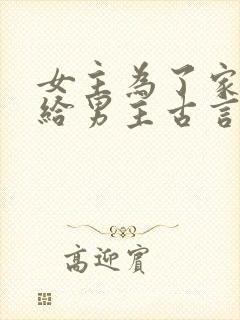 女主為了家
給男主古言
高迎賓